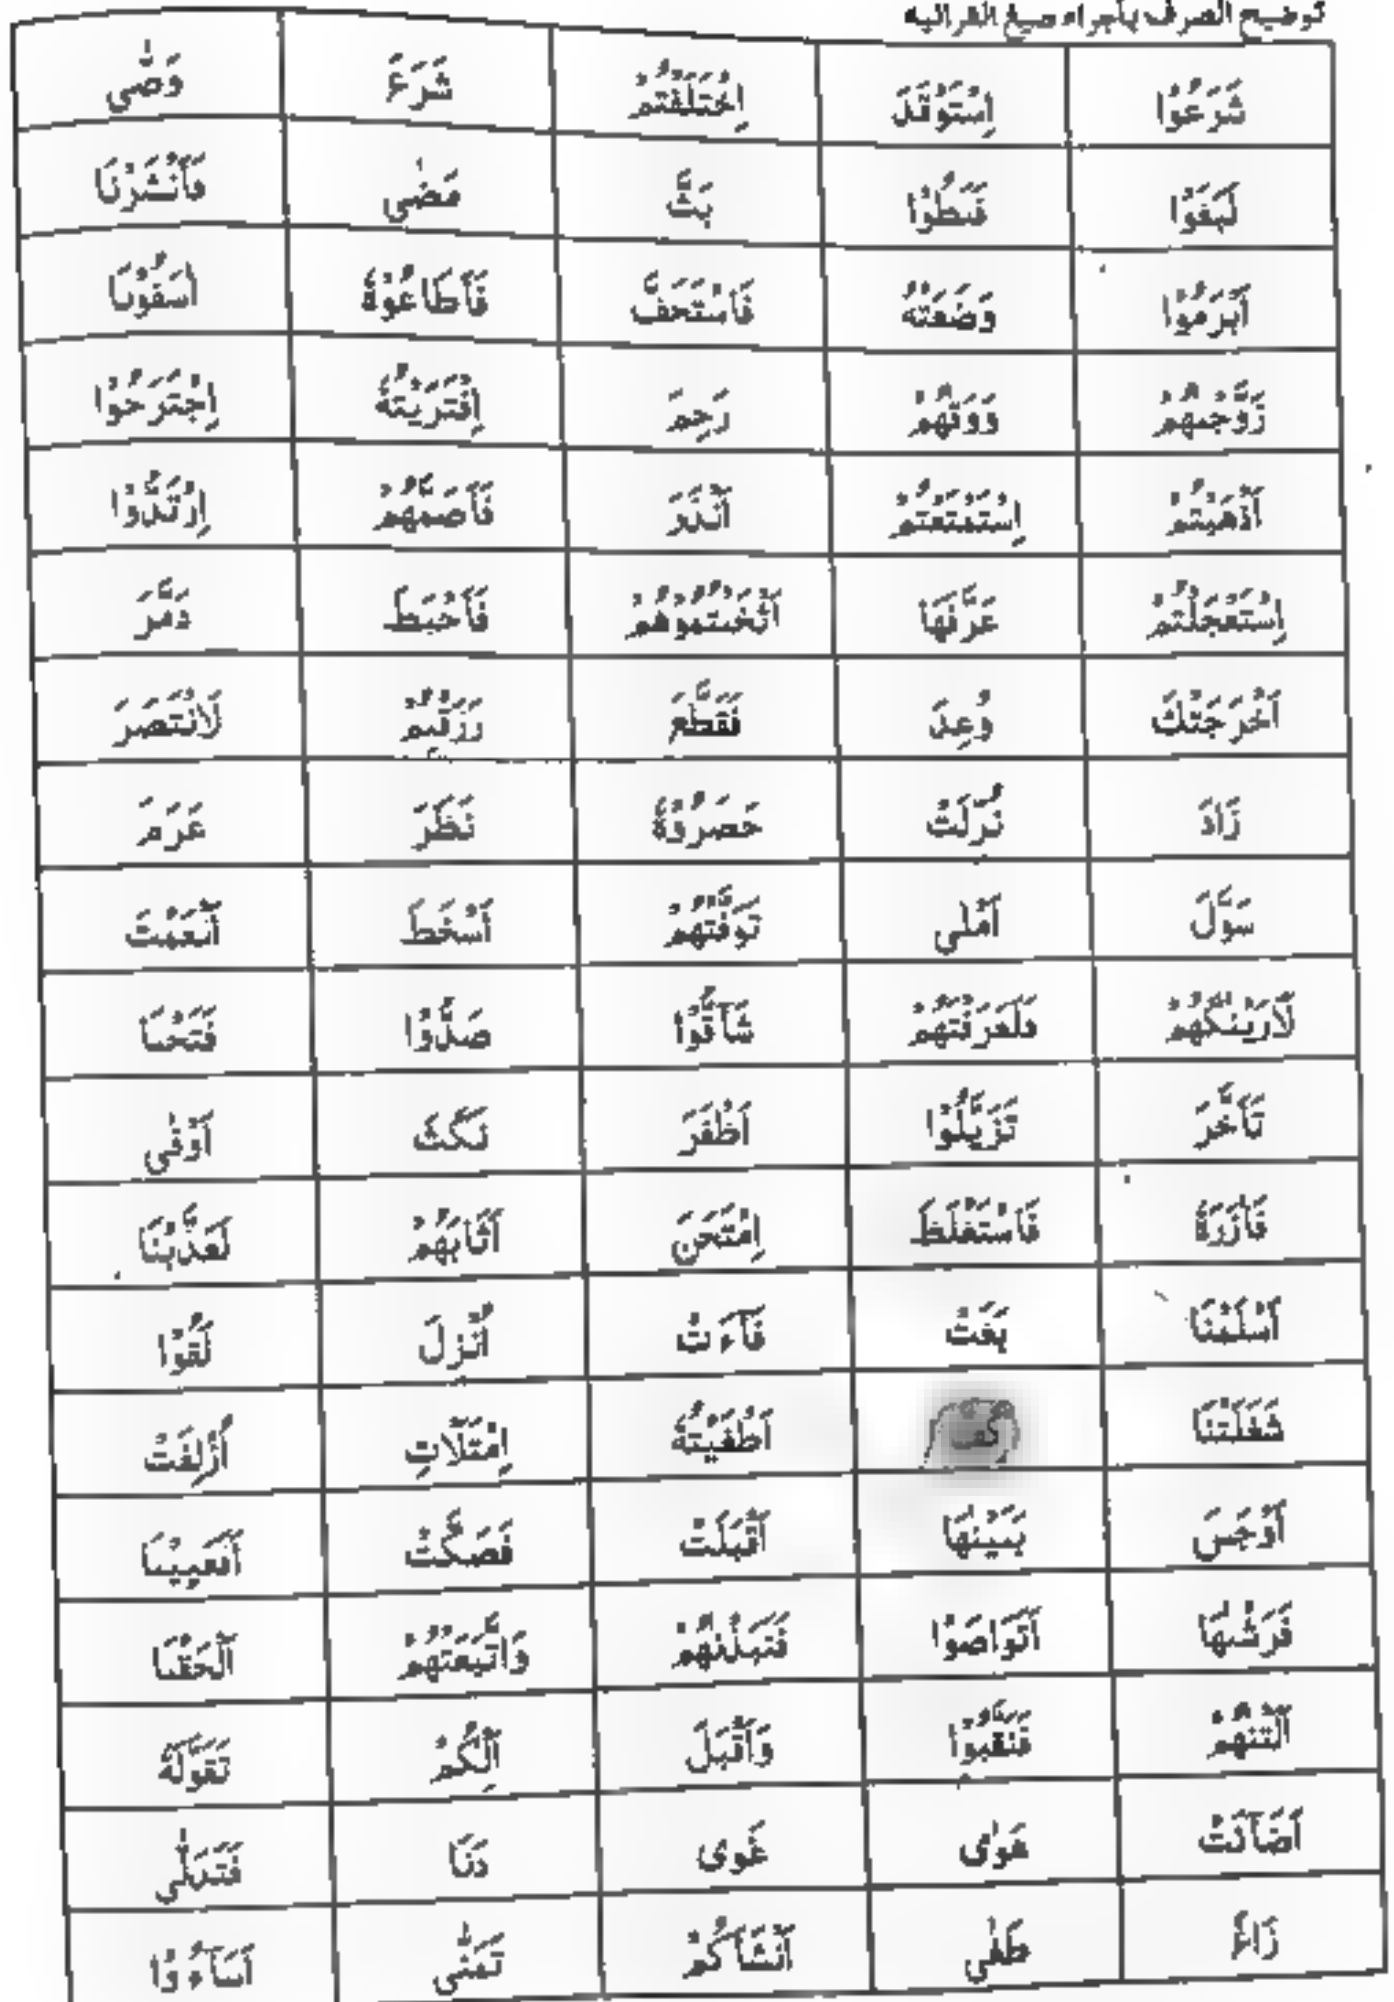 توضيح الصرف بأجراء صيغ القرانيه
شَرَعُوْا اِسْتَوْقَدَ اِخْتَلَفْتُمْ شَرَعَ وَصّٰى
لَبَغَوْا قَنَطُوْا بَثَّ مَضٰى فَاَنْشَرْنَا
اَبْرَمُوْا وَضَعَتْهُ فَاسْتَخَفَّ فَاَطَاعُوْهُ اٰسَفُوْنَا
زَوَّجْنٰهُمْ وَوَقٰهُمْ رَحِمَ اِفْتَرَيْتُهُ اِجْتَرَحُوْا
اَذْهَبْتُمْ اِسْتَمْتَعْتُمْ اَنْذَرَ فَاَصَمَّهُمْ اِرْتَدُّوْا
اِسْتَعْجَلْتُمْ عَرَّفَهَا اَثْخَنْتُمُوْهُمْ فَاَحْبَطَ دَمَّرَ
اَخْرَجَتْكَ وُعِدَ فَقَطَّعَ لَانْتَصَرَ
زَادَ نُزِّلَتْ نَظَرَ عَزَمَ
سَوَّلَ اَمْلٰى تَوَفَّتْهُمْ اَسْخَطَ اَنْعَمْتَ
لَاَرَيْنٰكَهُمْ فَلَعَرَفْتَهُمْ شَآقُّوْا صَدُّوْا فَتَحْنَا
تَاَخَّرَ تَزَيَّلُوْا اَظْفَرَ نَكَثَ اَوْفٰى
فَاٰزَرَهٗ فَاسْتَغْلَظَ اِمْتَحَنَ اَثَابَهُمْ لَعَذَّبْنَا
اَسْلَمْنَا بَغَتْ فَآءَتْ اُنْزِلَ لَقُوْا
شَغَلَتْنَا كَفَّ اَطْغَيْتُهٗ اِمْتَلَاْتِ اُزْلِفَتْ
اَوْجَسَ بَنَيْنٰهَا اَقْبَلَتْ فَصَكَّتْ اَفَعَيِيْنَا
فَرَشْنٰهَا اَتَوَاصَوْا فَنَبَذْنٰهُمْ وَاتَّبَعَتْهُمْ اَلْحَقْنَا
اَلَتْنٰهُمْ فَنَقَّبُوْا وَاَقْبَلَ تَقَوَّلَهٗ
هَوٰى غَوٰى دَنَا فَتَدَلّٰى
زَاغَ طَغٰى اَنْشَاَكُمْ تَمَنّٰى اَسَآءُوْا